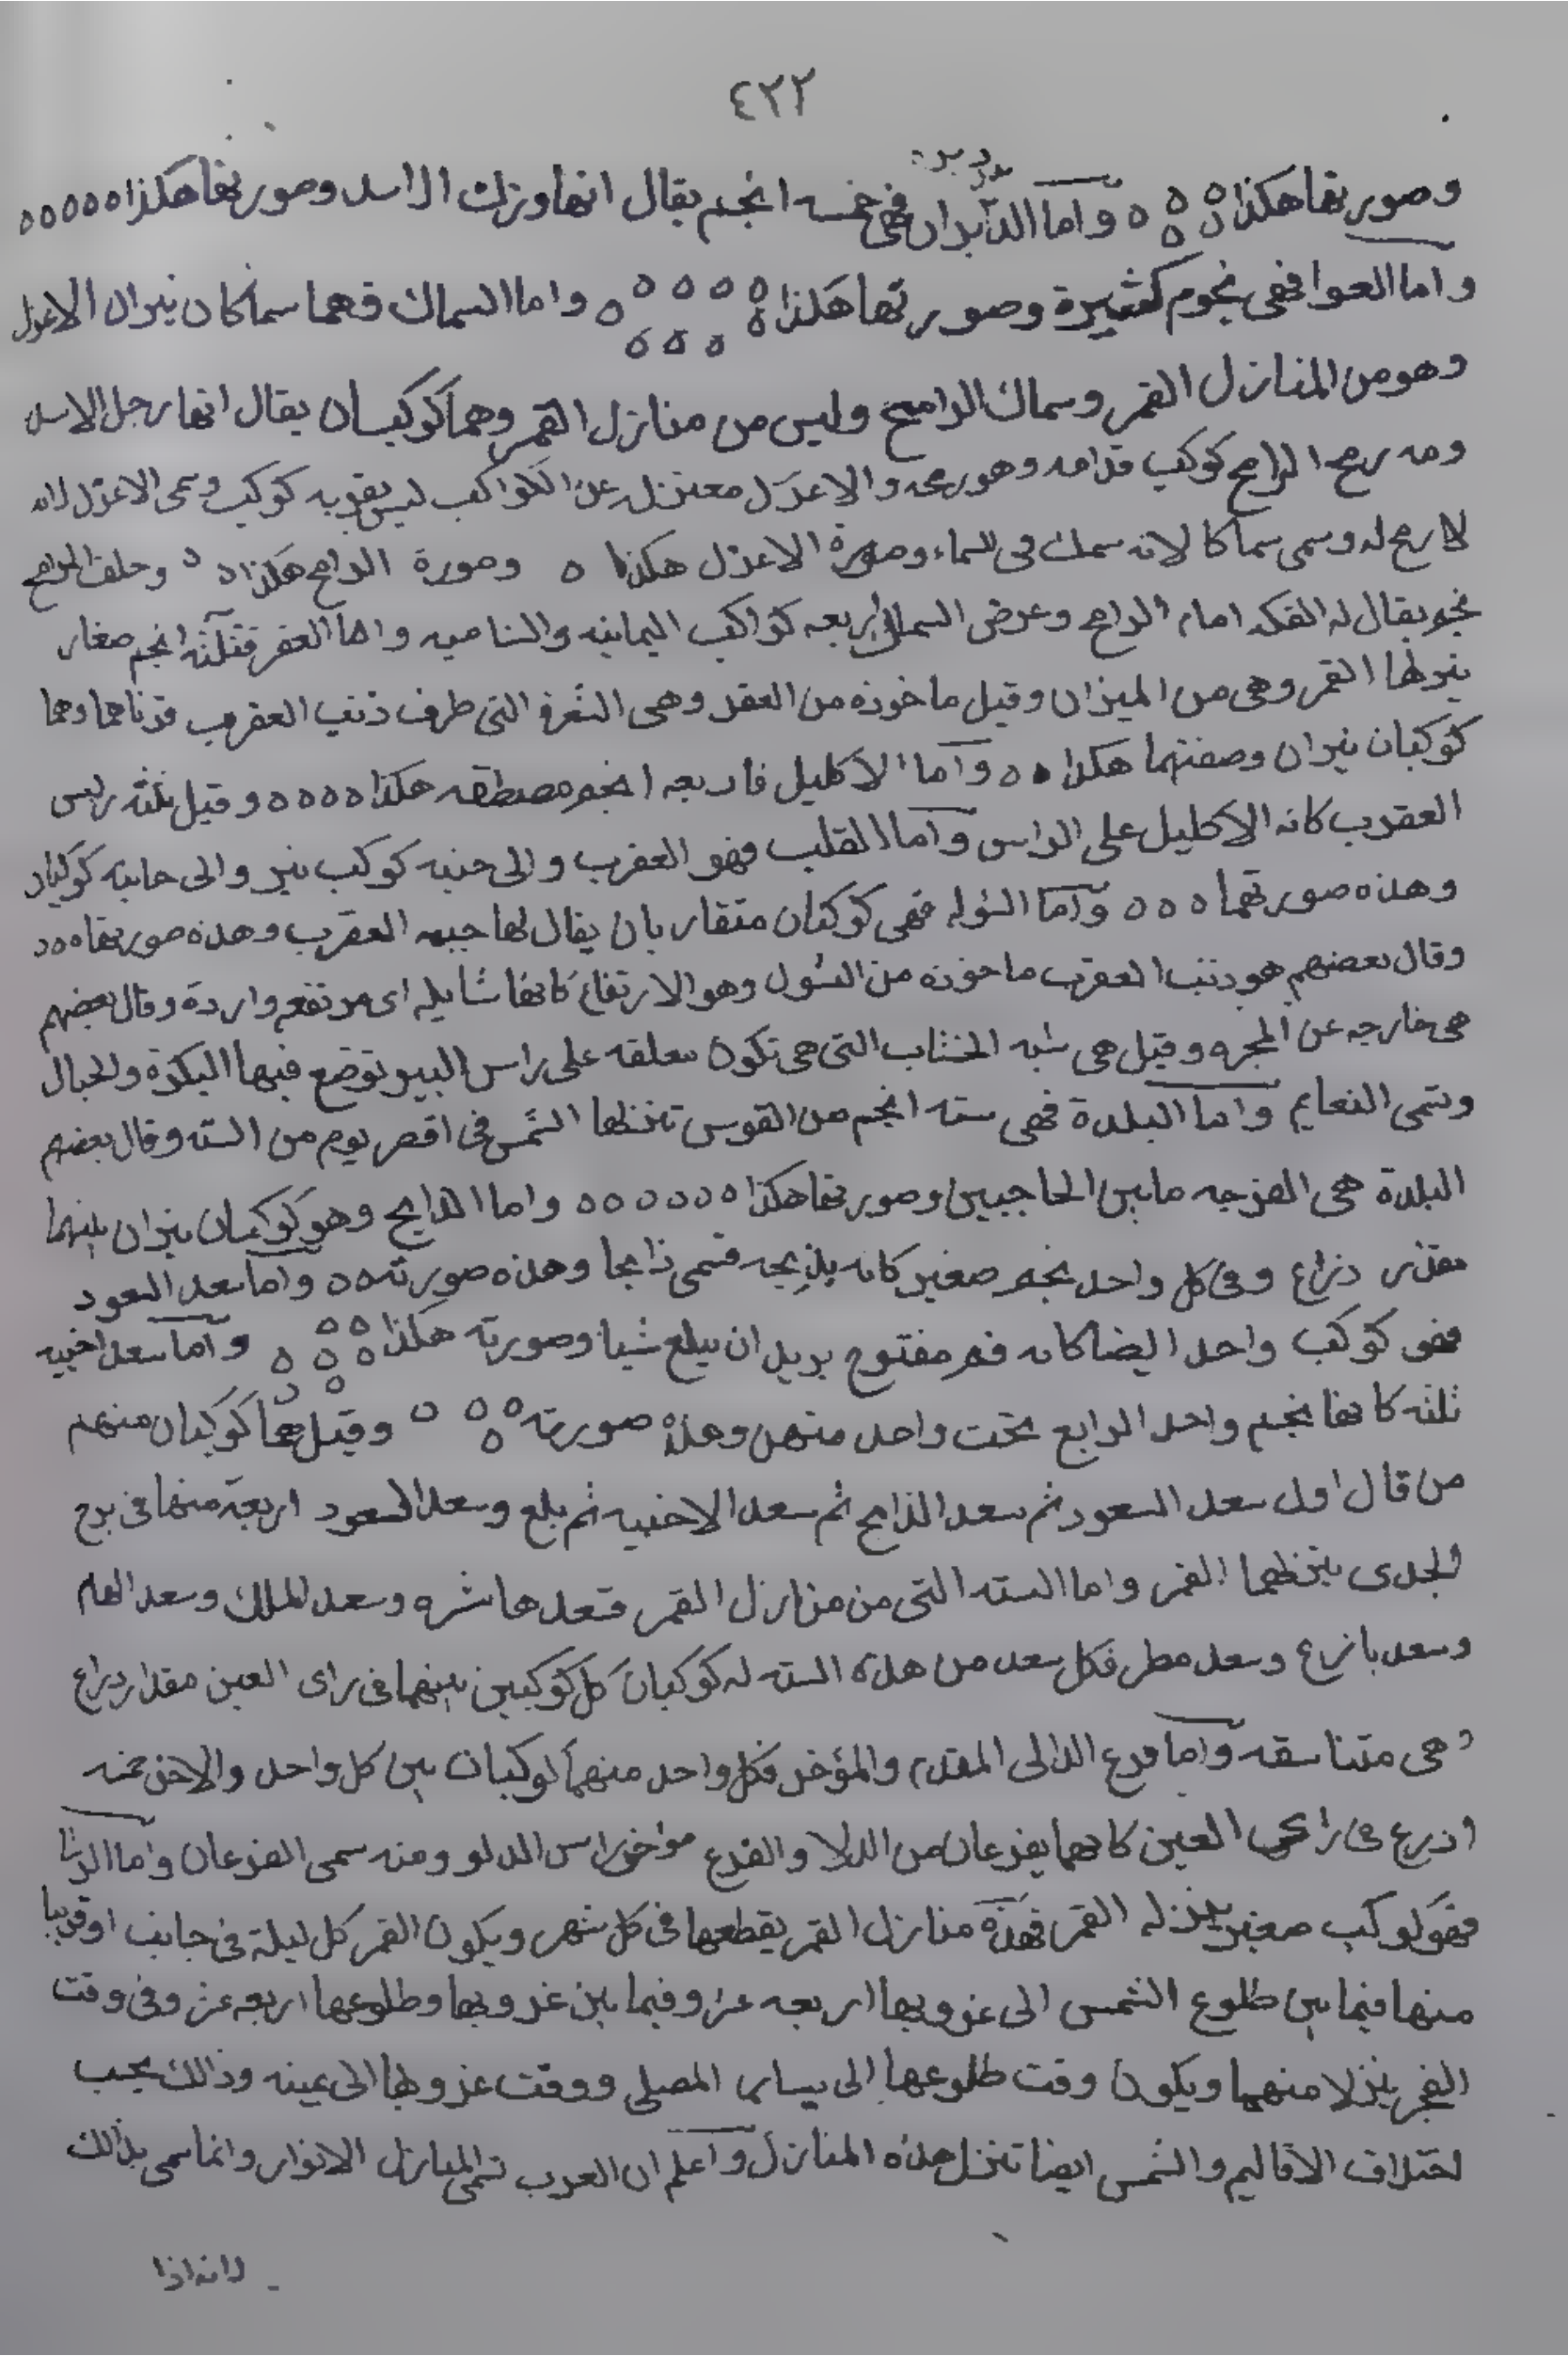 ٤٢٢
وصورتها هكذا ٥ ٥ ٥ ٥ ٥ واما الدبران فهي خمسه انجم يقال انها وركت الاسد وصورتها هكذا ٥٥٥٥٥
واما العوا فهي نجوم كثيرة وصورتها هكذا ٥ ٥ ٥ ٥ ٥ ٥ ٥ ٥ ٥ واما السماك فهما سماكان نيران الاعزل
وهو من المنازل القمر وسماك الرامح وليس من منازل القمر وهما كوكبان يقال انها رجل الاسد
ومه رمح الرامح كوكب قدامه وهو رمحه والاعزل معتزل عن الكواكب ليس بقربه كوكب وسمى الاعزل لانه
لا رمح له وسمى سماكا لانه سمك في السماء وصورة الاعزل هكذا ٥ وصورة الرامح هكذا ٥ ٥ وخلف الرامح
نجو يقال له الفكه امام الرامح وعرض السماك اربعه كواكب اليمانيه والشاميه واما الغفر فثلثه انجم صغار
ينزلها القمر وهي من الميزان وقيل ماخوذه من الغفر وهي الشعرة التي طرف ذنب العقرب قرناهما وهما
كوكبان نيران وصفتهما هكذا ٥٥ واما الاكليل فاربعه انجم مصطفه هكذا ٥٥٥٥ وقيل ثلثه راس
العقرب كانه الاكليل على الراس واما القلب فهو العقرب والى جنبه كوكب نير والى جانبه كوكبان
وهذه صورتهما ٥٥٥ واما الشوله فهي كوكبان متقاربان يقال لها جبهه العقرب وهذه صورتها ٥٥٥
وقال بعضهم هو ذنب العقرب ماخوذه من الشول وهو الارتفاع كانها شايله اى مرتفعه واردة وقال بعضهم
هي خارجه عن المجره وقيل هي شبه الخشاب التي هي تكون معلقه على راس البير توضع فيها البكرة والحبال
وتسمى النعايم واما البلدة فهي سته انجم من القوس تنزلها الشمس في اقصر يوم من السنه وقال بعضهم
البلدة هي الفرجه مابين الحاجبين وصورتها هكذا ٥٥٥٥٥٥ واما الذابح وهو كوكبان نيران بينهما
مقدر ذراع وفي كل واحد نجم صغير كانه يذبحه فسمى ذابحا وهذه صورته ٥٥ واما سعد السعود
فهو كوكب واحد ايضا كانه فم مفتوح يريد ان يبلع شيا وصورته هكذا ٥ ٥ ٥ ٥ ٥ ٥ واما سعد اخبيه
ثلثه كانها نجم واحد الرابع تحت واحد منهن وهذه صورته ٥ ٥ ٥ ٥ ٥ وقيل هما كوكبان منهم
من قال اول سعد السعود ثم سعد الذابح ثم سعد الاخبيه ثم بلع وسعد السعود اربعة منها في برج
الجدى ينزلهما القمر واما السته التي من منازل القمر فسعد هاشره وسعد الملك وسعد الهام
وسعد بازرع وسعد مطر فكل سعد من هذه السته له كوكبان كل كوكبين بينهما في راى العين مقدار ذراع
وهي متناسقه واما فرع الدالى المقدم والمؤخر فكل واحد منهما كوكبان بين كل واحد والاخر خمسه
اذرع في راى العين كانهما يفرعان من الدلا والفرع مواخر راس الدلو ومنه سمى الفرعان واما الرشا
فهو كوكب صغير ينزله القمر فهذه منازل القمر يقطعها في كل شهر ويكون القمر كل ليلة في جانب او قريبا
منها فيما بين طلوع الشمس الى غروبها اربعه عز وفيما بين غروبها وطلوعها اربعه عز وفي وقت
الفجر ينزلا منهما ويكون وقت طلوعها الى يسار المصلى ووقت غزوبها الى يمينه وذالك بحسب
اختلاف الاقاليم والشمس ايضا تنزل هذه المنازل واعلم ان العرب تسمى المنازل الانوار وانما سمى بذالك
لانه اذا